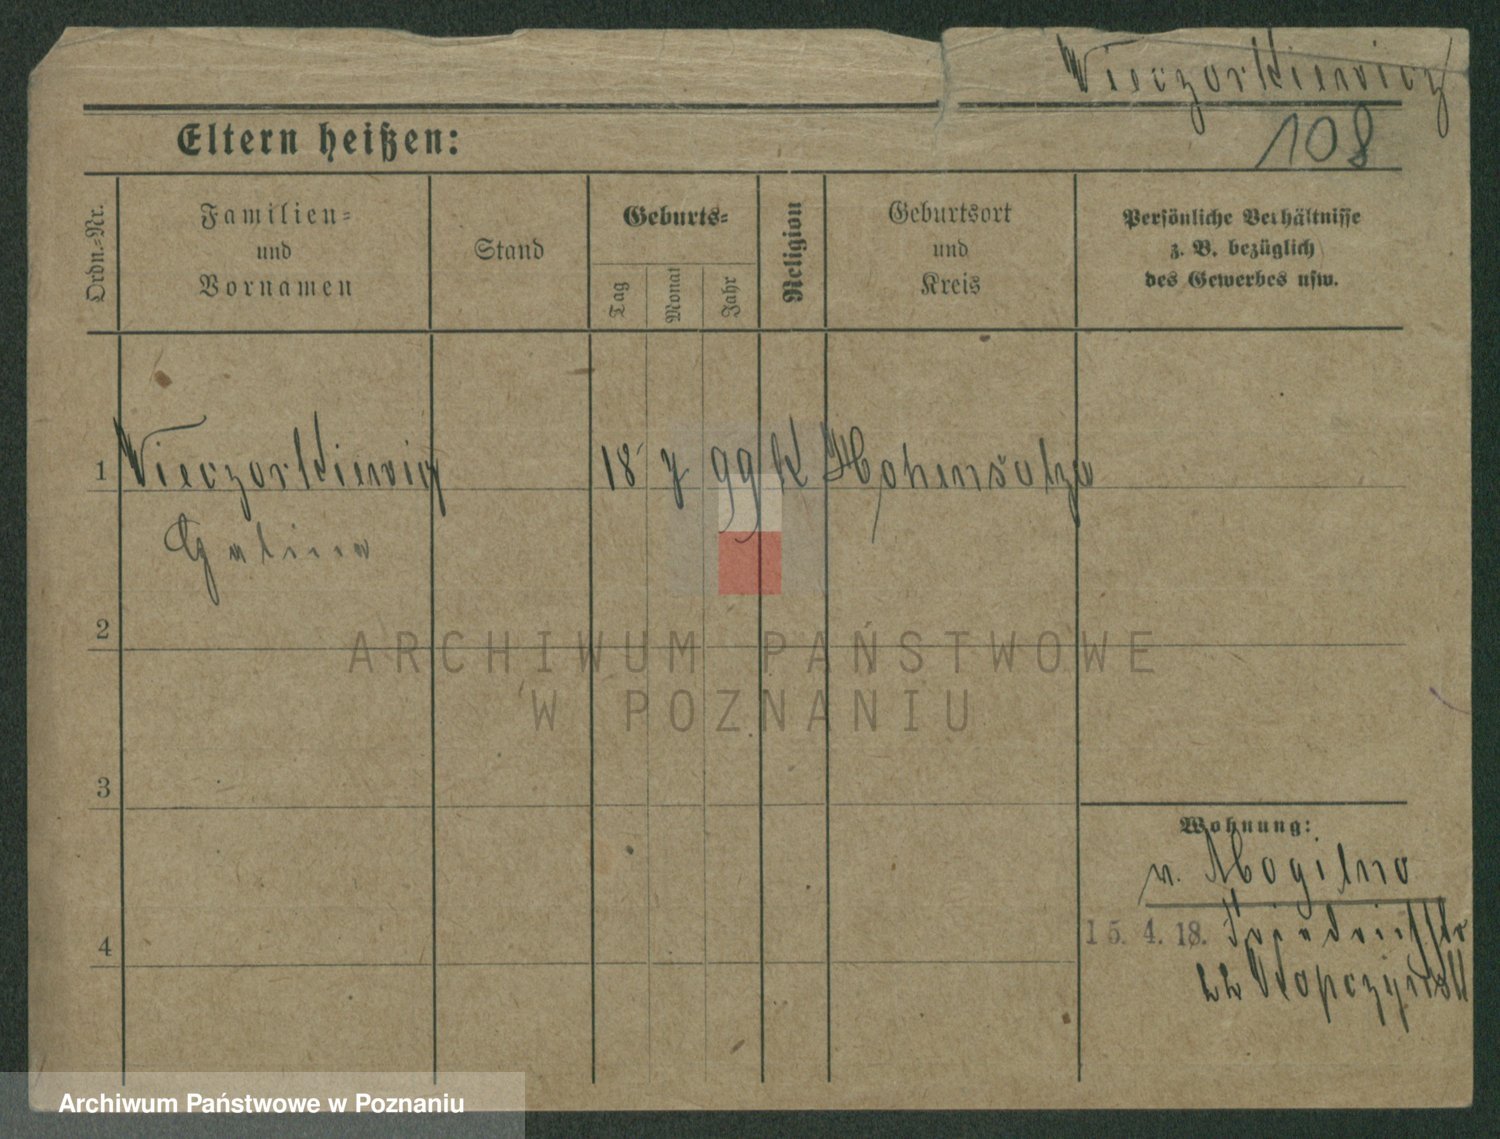 Wieczorkiewicz
108
Eltern heißen:
Ordn.-Nr.
Familien-
und
Vornamen
Stand
Geburts-
Tag
Monat
Jahr
Religion
Geburtsort
und
Kreis
Persönliche Verhältnisse
z. B. bezüglich
des Gewerbes usw.
1 Wieczorkiewicz 18 7 99 K Hohensalza
Galina
2
3
4
Wohnung:
v. Mogilno
15. 4. 18. Friedrichstr
22
ARCHIWUM PAŃSTWOWE
W POZNANIU
Archiwum Państwowe w Poznaniu